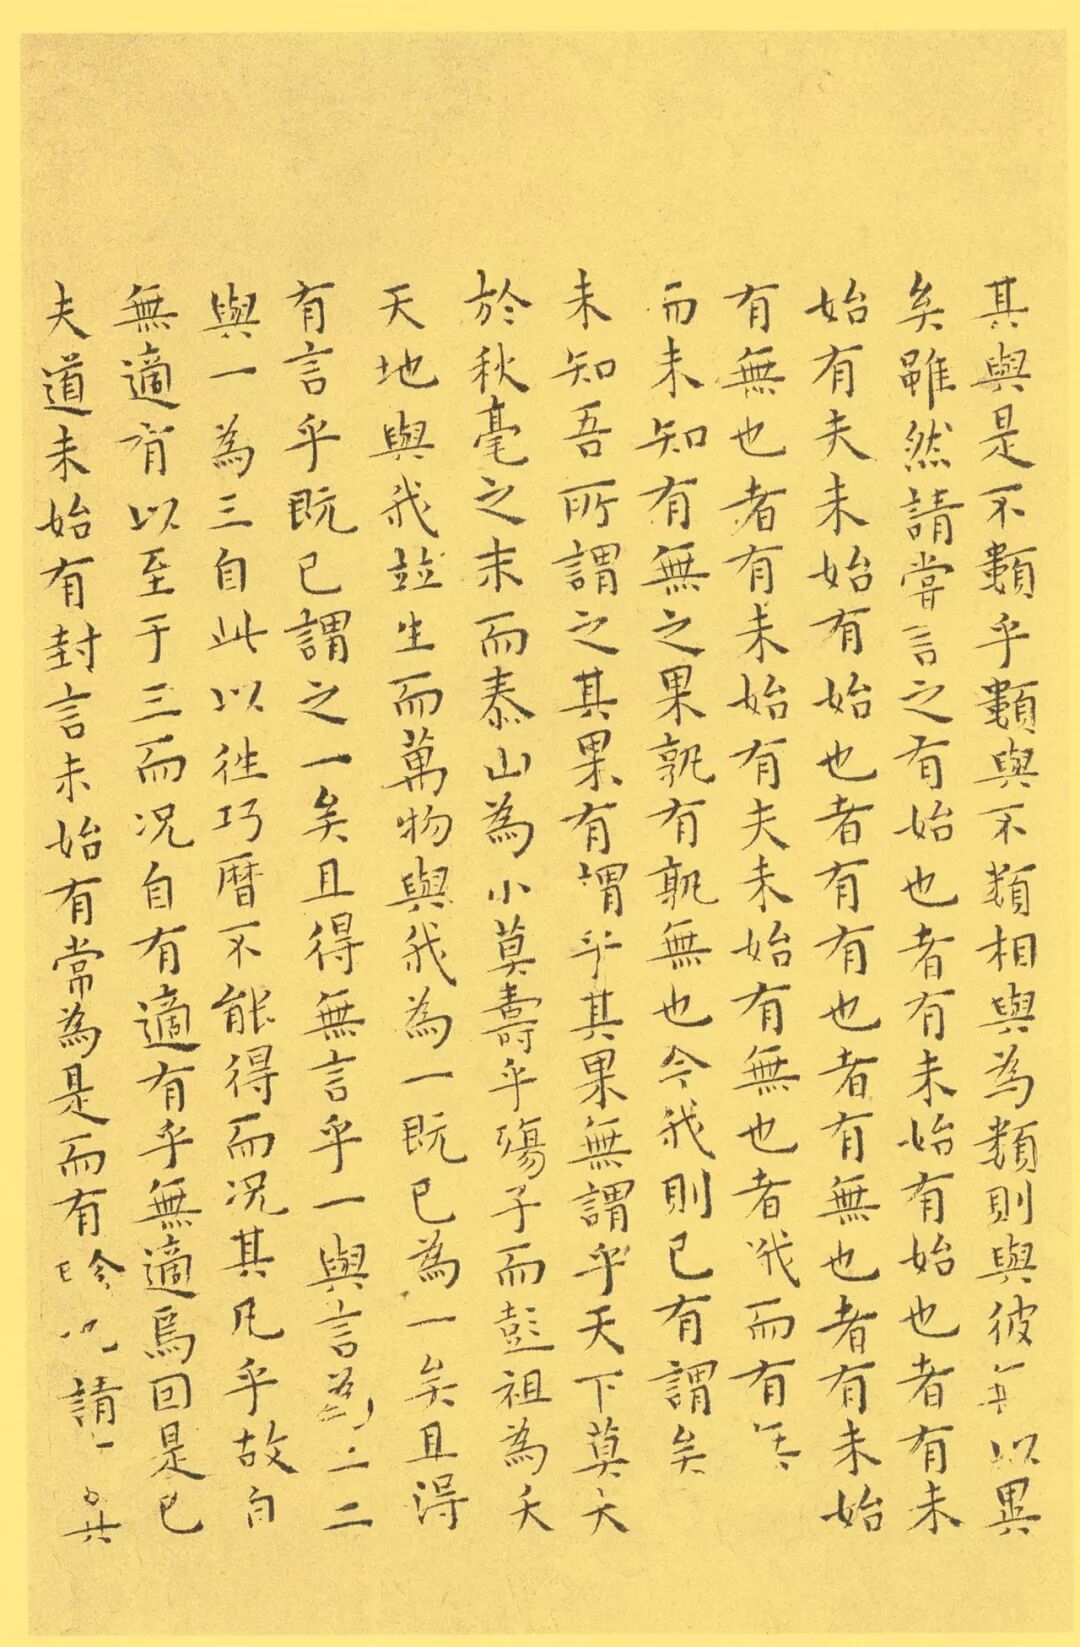 其與是不類乎類與不類相與為類則與彼無以異
矣雖然請嘗言之有始也者有未始有始也者有未
始有夫未始有始也者有有也者有無也者有未始
有無也者有未始有夫未始有無也者我而有
而未知有無之果孰有孰無也今我則已有謂矣
未知吾所謂之其果有謂乎其果無謂乎天下莫大
於秋毫之末而泰山為小莫壽乎殤子而彭祖為夭
天地與我竝生而萬物與我為一既已為一矣且得
有言乎既已謂之一矣且得無言乎一與言為二二
與一為三自此以徃巧暦不能得而况其凡乎故自
無適有以至于三而况自有適有乎無適焉回是已
夫道未始有封言未始有常為是而有畛請其